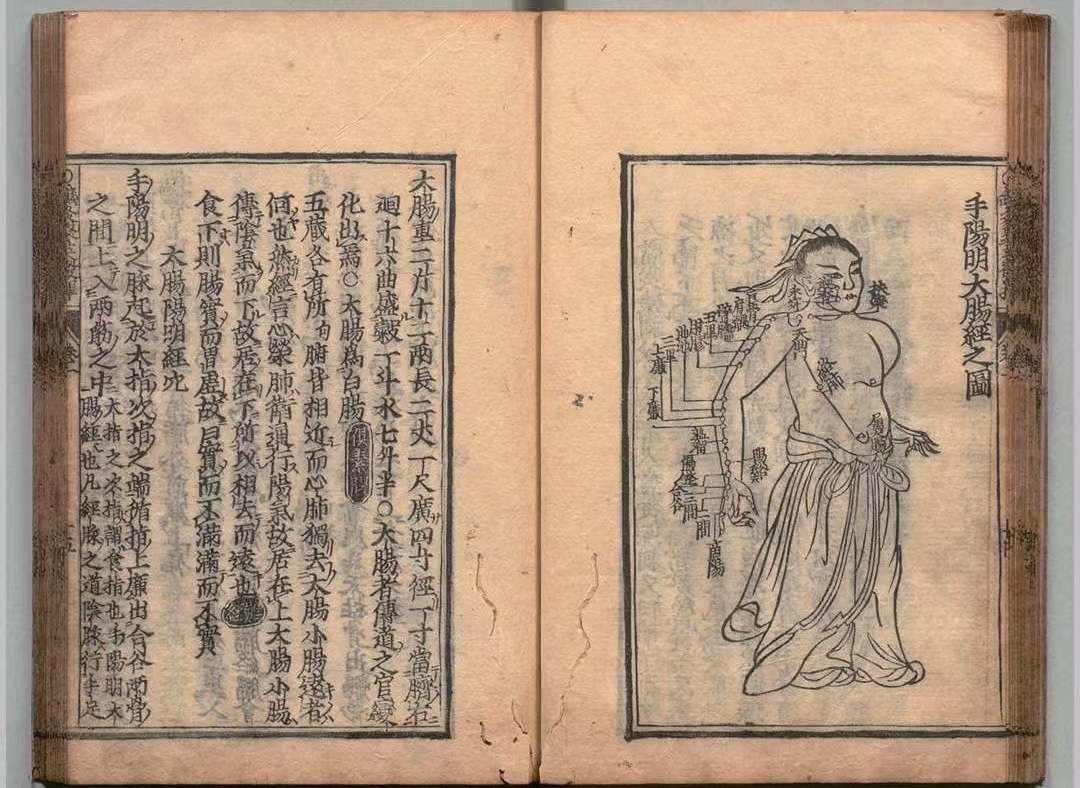 手陽明大腸經之圖
扶突
天鼎
肩髃
臂臑
五里
三里
上廉
下廉
陽谿
合谷
三間
二間
商陽
大腸重二斤十二兩長二丈一尺廣四寸徑一寸當臍右
廻十六曲盛穀一斗水七升半〇大腸者傳道之官變
化出焉〇大腸為白腸
五藏各有所腑皆相近而心肺獨去大腸小腸遠者
何也然經言心榮肺衛通行陽氣故居在上大腸小腸
傳陰氣而下故居在下所以相去而遠也
食下則腸實而胃虛故曰實而不滿滿而不實
大腸陽明經穴
手陽明之脉起於大指次指之端循指上廉出合谷兩骨
之間上入兩筋之中
大指之次指謂食指也手陽明大
腸經也凡經脉之道陰脉行手足